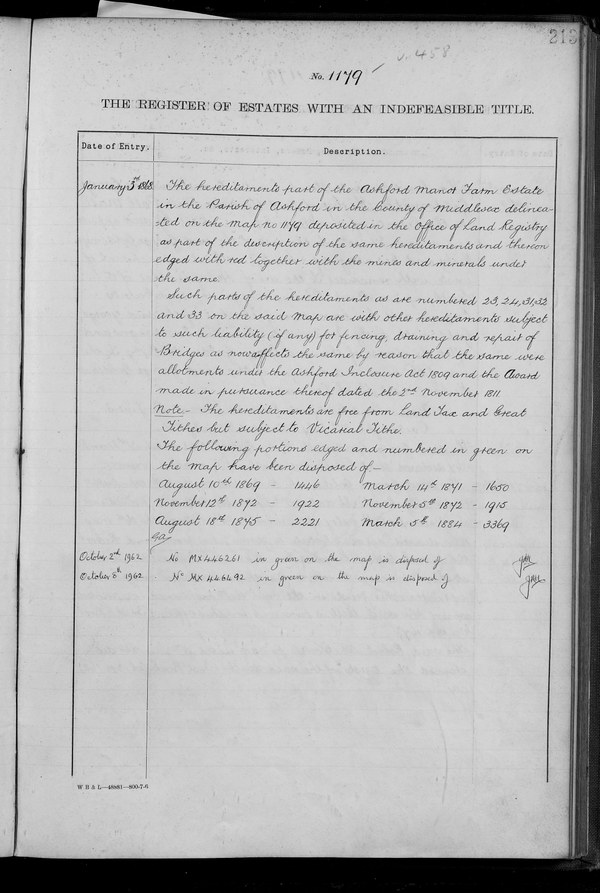 213
v. 458
No. 1179
THE REGISTER OF ESTATES WITH AN INDEFEASIBLE TITLE.
Date of Entry.
Description.
January 3rd 1868
The hereditaments part of the Ashford Manor Farm Estate
in the Parish of Ashford in the County of Middlesex delinea-
-ted on the Map No 1179 deposited in the Office of Land Registry
as part of the description of the same hereditaments and thereon
edged with red together with the mines and minerals under
the same.
Such parts of the hereditaments as are numbered 23, 24, 31, 32
and 33 on the said Map are with other hereditaments subject
to such liability (if any) for fencing, draining and repair of
Bridges as now affects the same by reason that the same were
allotments under the Ashford Inclosure Act 1809 and the Award
made in pursuance thereof dated the 2nd November 1811.
Note - The hereditaments are free from Land Tax and Great
Tithes but subject to Vicarial Tithe.
The following portions edged and numbered in green on
the map have been disposed of -
August 10th 1869 - 1446 March 14th 1871 - 1650
November 12th 1872 - 1922 November 5th 1872 - 1915
August 18th 1875 - 2221 March 5th 1884 - 3369
October 2nd 1962 No MX446261 in green on the map is disposed of
October 8th 1962 No MX446492 in green on the map is disposed of
W B & L—48881—800-7-6